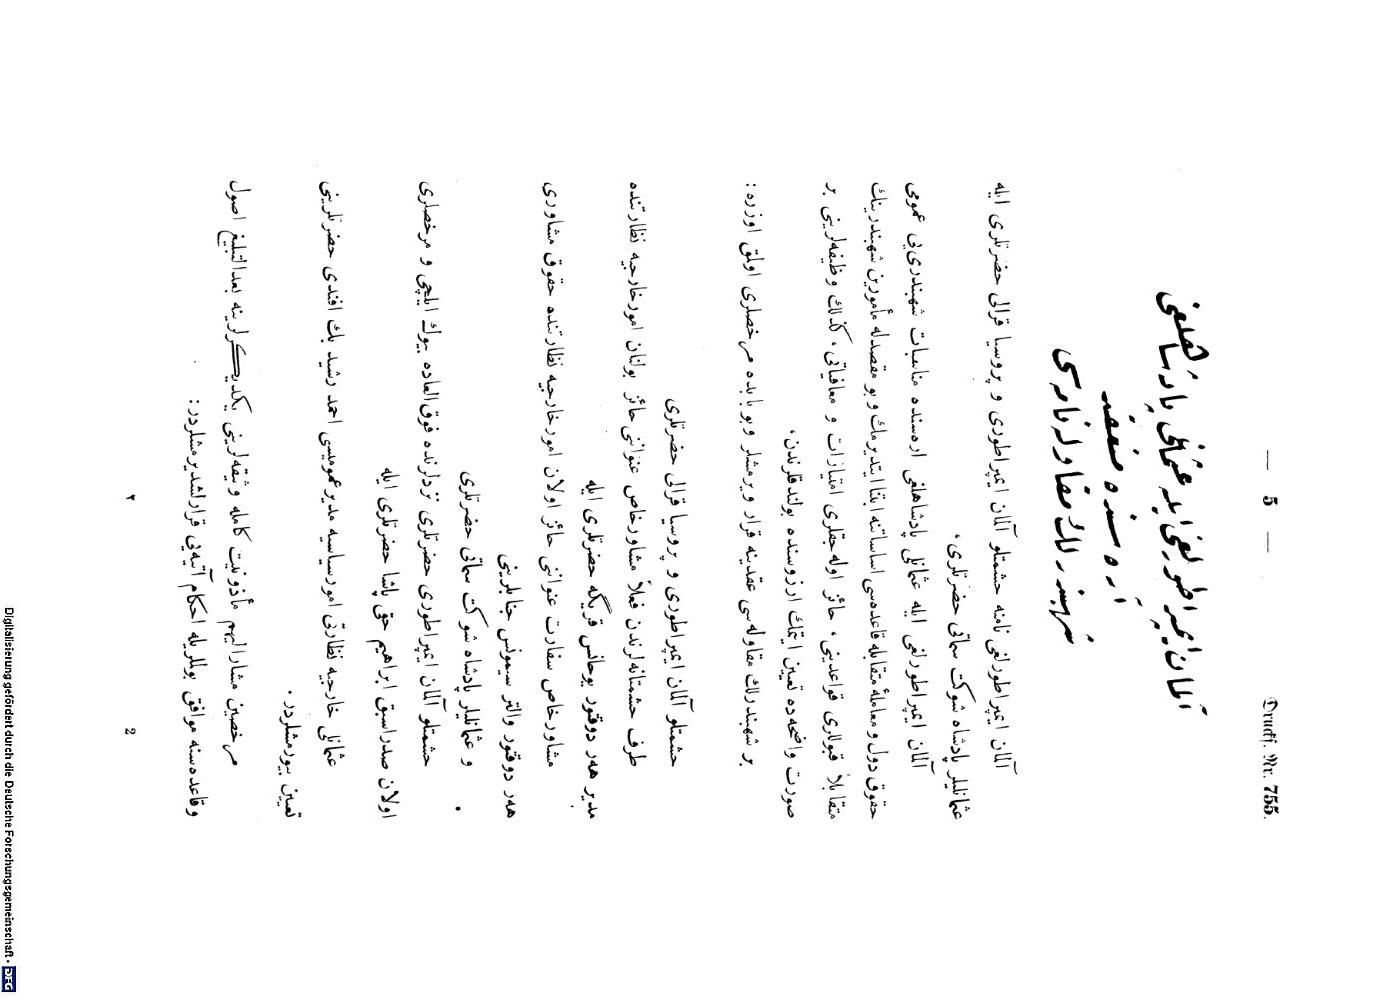 — 5 —
Druckf. Nr. 755.
آلمان ایمپراطورلغی ایله عثمانلی پادشاهلغی
آره سنده منعقد
شهبندرلك مقاوله نامه سی
آلمان ایمپراطورلغی نامنه حشمتلو آلمان ایمپراطوری و پروسیا قرالی حضرتلری ایله
عثمانلیلر پادشاه شوکت سماتی حضرتلری ،
آلمان ایمپراطورلغی ایله عثمانلی پادشاهلغی اره سنده مناسبات شهبندری یی عمومی
حقوق دول و معاملهٔ متقابله قاعده سی اساساتنه ابتنا ایتدیرمك و بو مقصدله مأمورین شهبندرینك
متقابلاً قبوللری قواعدینی ، حائز اوله جقلری امتیازات و معافیاتی ، کذلك وظیفه لرینی بر
صورت واضحه ده تعیین ایتمك ارزوسنده بولندقلرندن ،
بر شهبندرلك مقاوله سی عقدینه قرار ویرمشلر و بو بابده مرخصلری اولمق اوزره :
حشمتلو آلمان ایمپراطوری و پروسیا قرالی حضرتلری
طرف حشمتانه لرندن فعلاً مشاور خاص عنوانی حائز بولنان امور خارجیه نظارتنده
مدیر هه ر دوقتور یوحانس قریگه حضرتلری ایله
مشاور خاص سفارت عنوانی حائز اولان امور خارجیه نظارتنده حقوق مشاوری
هه ر دوقتور والتر سیمونس جنابلرینی
و عثمانلیلر پادشاه شوکت سماتی حضرتلری
حشمتلو آلمان ایمپراطوری حضرتلری نزدلرنده فوق العاده بیوك ایلچی و مرخصلری
اولان صدر اسبق ابراهیم حقی پاشا حضرتلری ایله
عثمانلی خارجیه نظارتی امور سیاسیه مدیر عمومیسی احمد رشید بك افندی حضرتلرینی
تعیین بیورمشلردر .
مرخصین مشار الیهم مأذونیت کامله وثیقه لرینی یکدیگرلرینه بعد التبلیغ اصول
و قاعده سنه موافق بولملریله احکام آتیه یی قرارلشدیرمشلردر :
٢
2
Digitalisierung gefördert durch die Deutsche Forschungsgemeinschaft · DFG